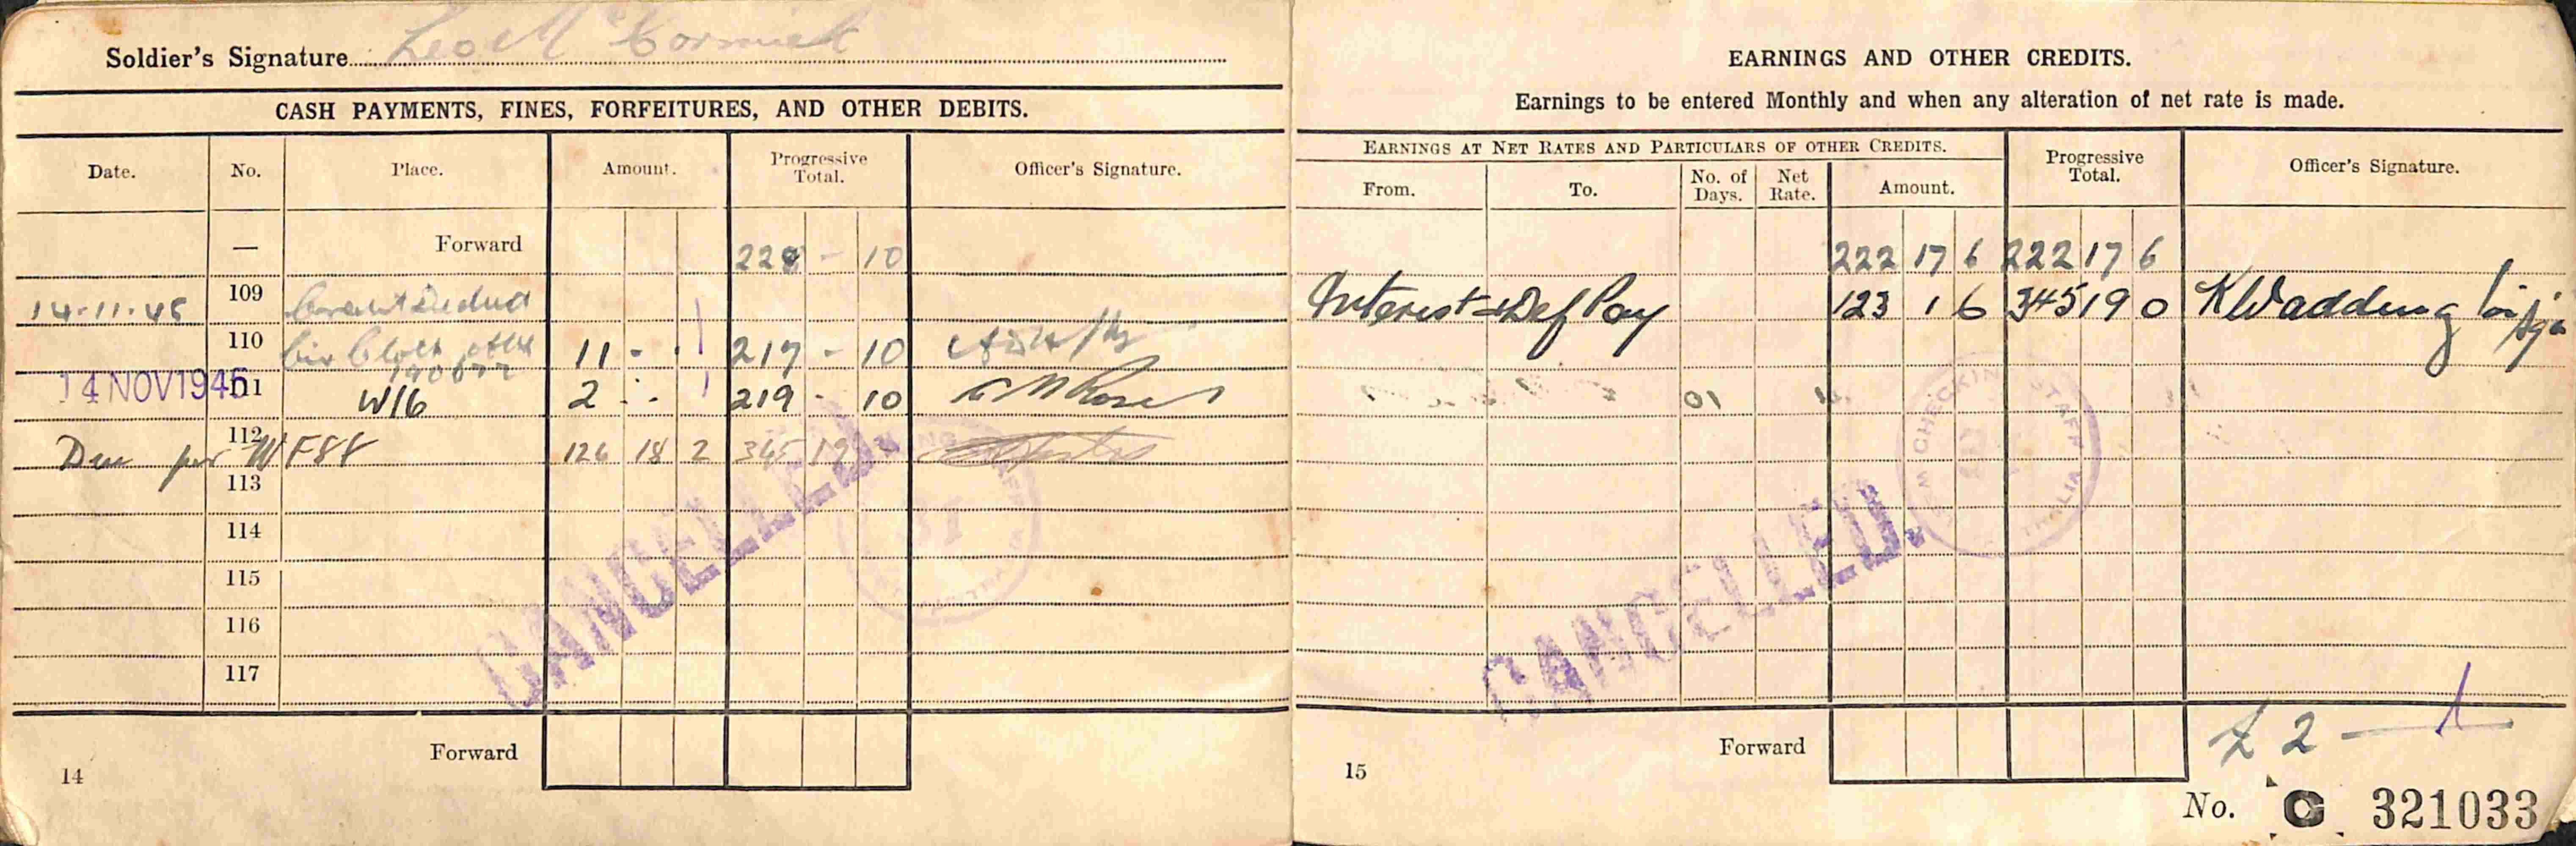 Soldier's Signature Leo McCormick
CASH PAYMENTS, FINES, FORFEITURES, AND OTHER DEBITS.
Date. No. Place. Amount. Progressive Total. Officer's Signature.
— Forward 228 - 10
14-11-45 109
110 Civ Cloth 11 - - 217 - 10
14 NOV 1945 111 W16 2 - - 219 - 10
112 Due per WF88 126 18 2 345 19
113
114
115
116
117
CANCELLED.
Forward
14
EARNINGS AND OTHER CREDITS.
Earnings to be entered Monthly and when any alteration of net rate is made.
EARNINGS AT NET RATES AND PARTICULARS OF OTHER CREDITS. Progressive Total. Officer's Signature.
From. To. No. of Days. Net Rate. Amount.
222 17 6 222 17 6
Interest + Def Pay 123 1 6 345 19 0 KWadding
CHECKING STAFF
CANCELLED.
Forward
£2 —
15
No. C 321033